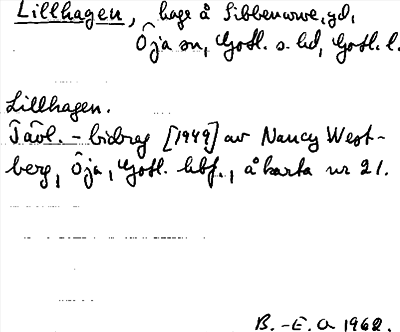 Lillhagen, hage å Sibbenarve, gd,
Öja sn, Gotl. s. hd, Gotl. l.
Lillhagen.
Tävl.-bidrag [1949] av Nancy West-
berg, Öja, Gotl. hbf., å karta nr 21.
B.-E. O 1962.